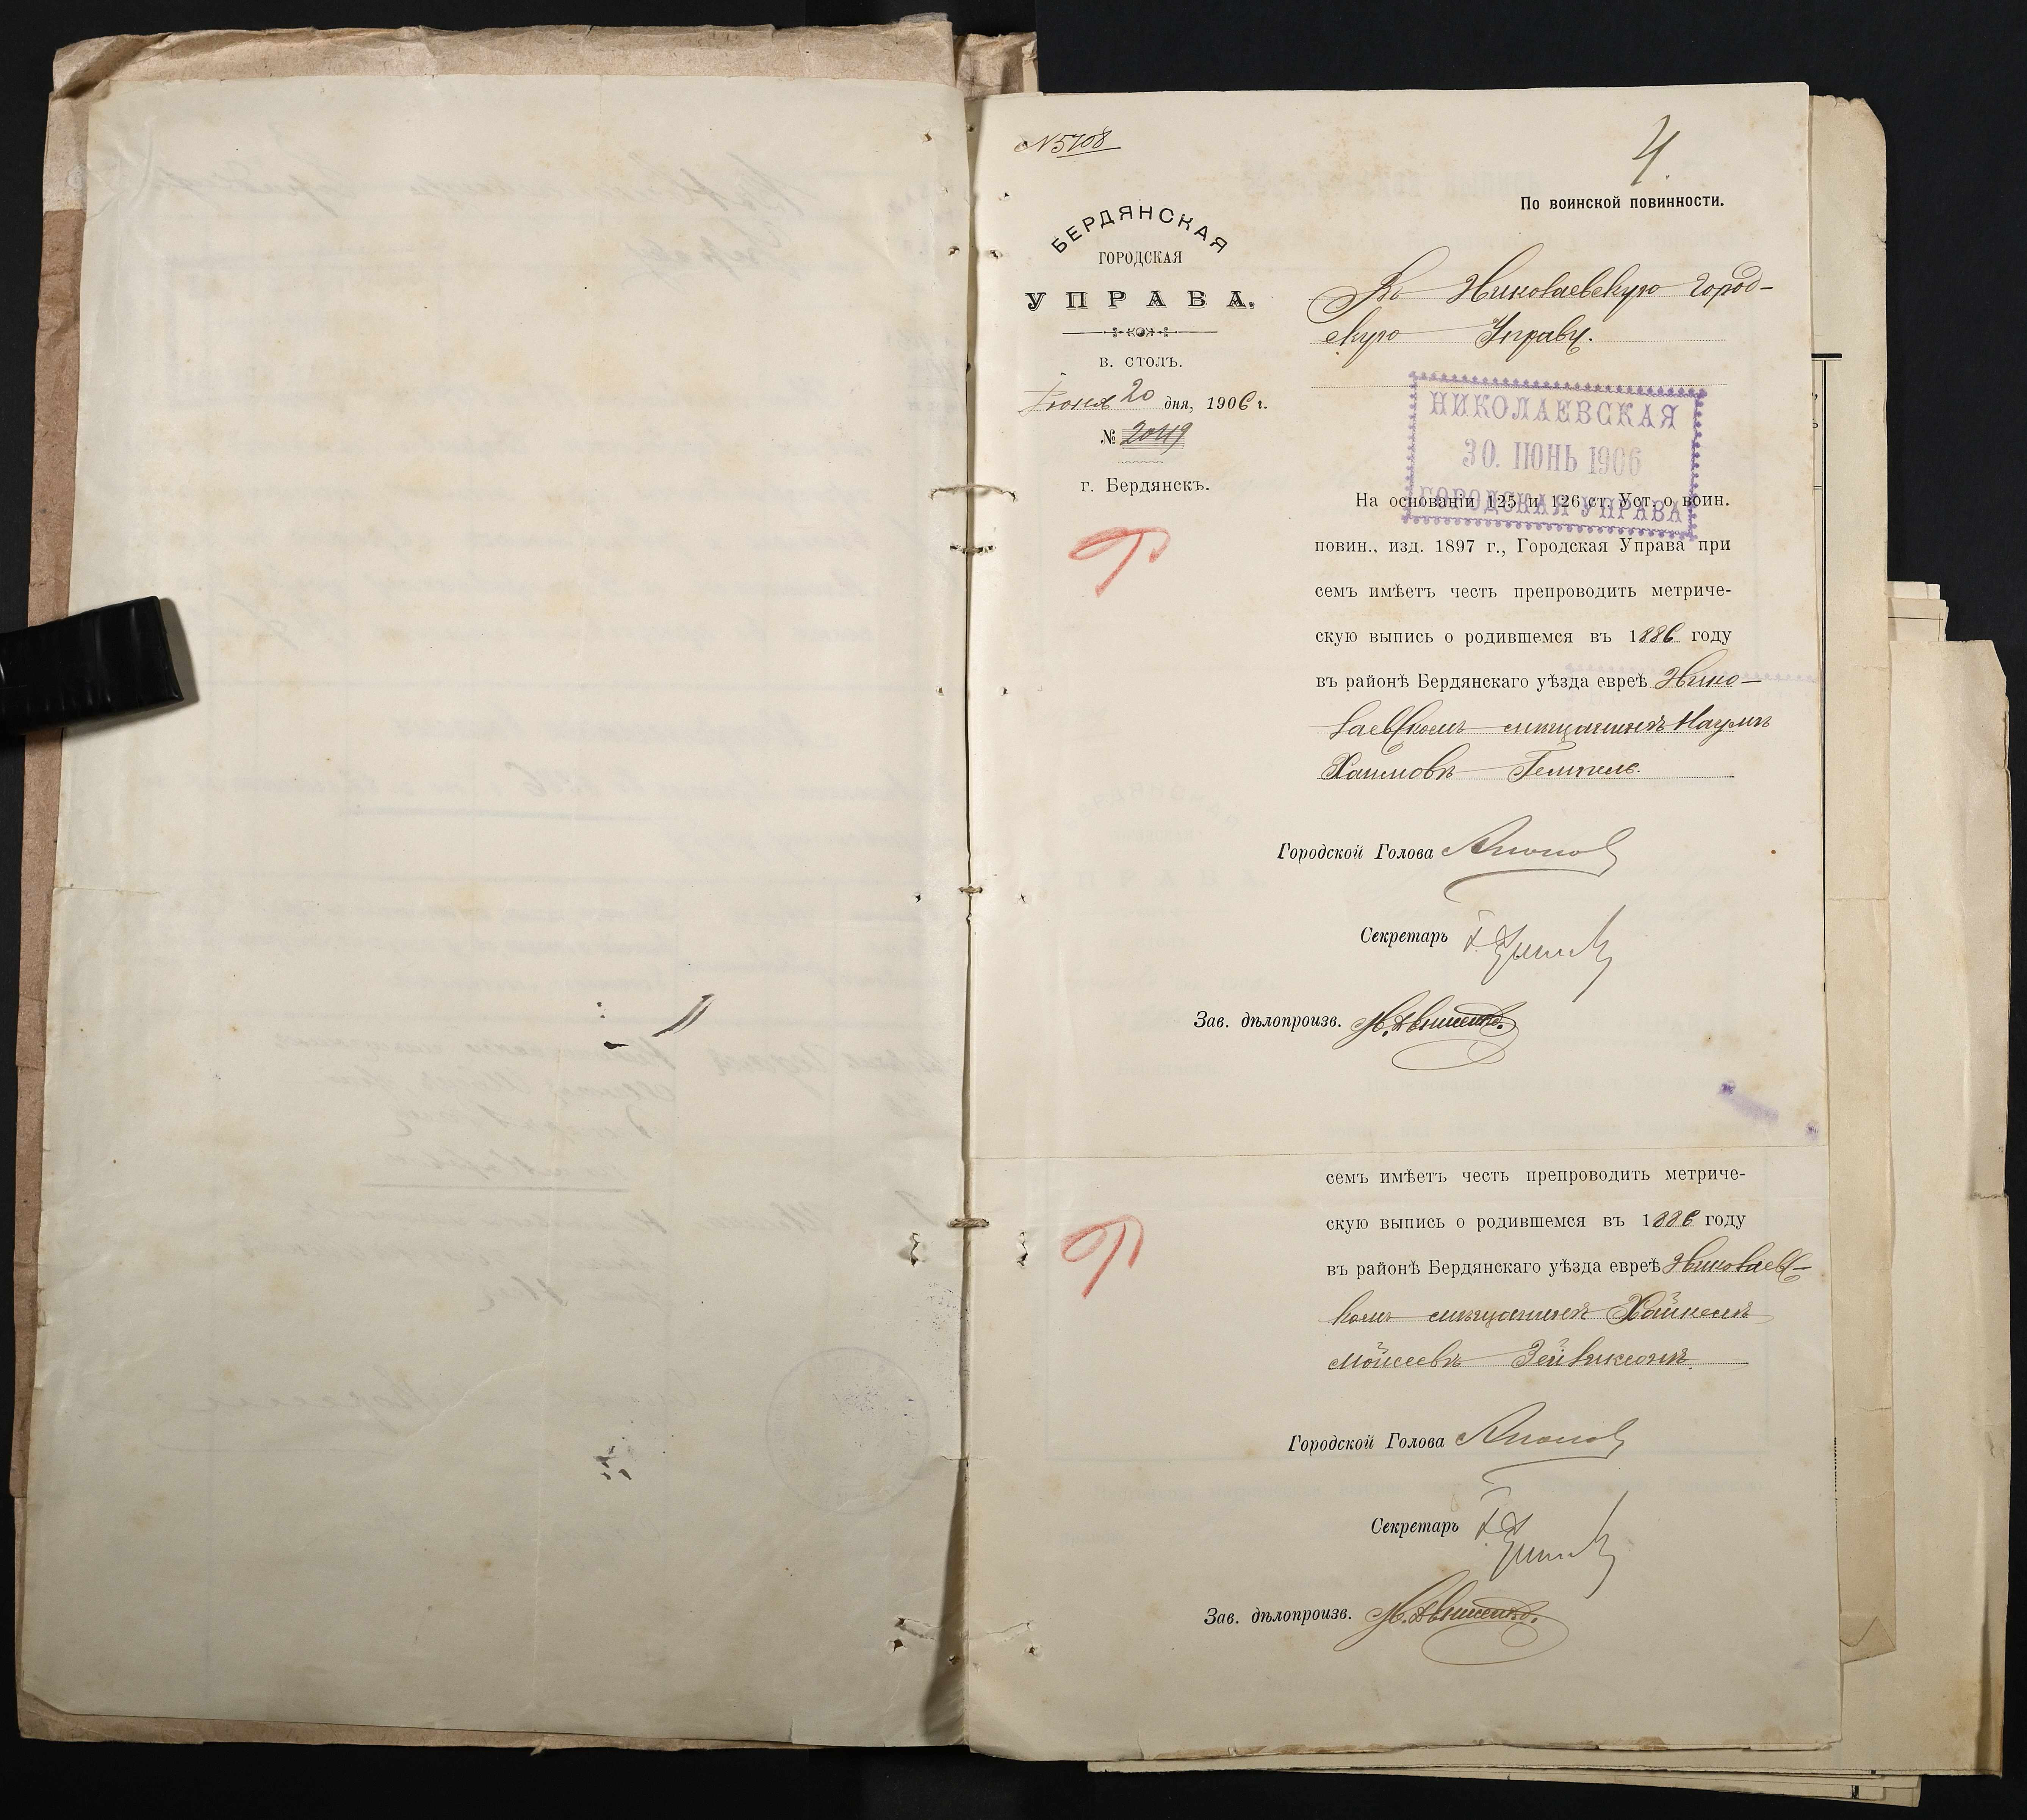 N5708
4
По воинской повинности.
БЕРДЯНСКАЯ
ГОРОДСКАЯ
УПРАВА.
в. столъ.
Іюня 20 дня, 1906 г.
№ 2049
г. Бердянскъ.
Въ Николаевскую Город-
скую Управу.
НИКОЛАЕВСКАЯ
30. ІЮНЬ 1906
ГОРОДСКАЯ УПРАВА
На основаніи 125 и 126 ст. Уст. о воин.
повин., изд. 1897 г., Городская Управа при
семъ имѣетъ честь препроводить метриче-
скую выпись о родившемся въ 1886 году
въ районѣ Бердянскаго уѣзда евреѣ Нико-
лаевскомъ мѣщанинѣ Наумѣ
Хаимовѣ
Городской Голова
Секретарь
Зав. дѣлопроизв.
семъ имѣетъ честь препроводить метриче-
скую выпись о родившемся въ 1886 году
въ районѣ Бердянскаго уѣзда евреѣ Николаевс-
комъ мѣщанинѣ
Мойсеевѣ
Городской Голова
Секретарь
Зав. дѣлопроизв.